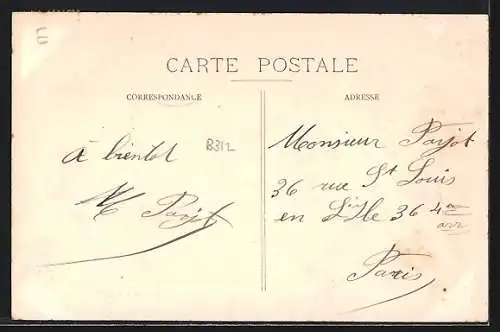 E
CARTE POSTALE
CORRESPONDANCE
à bientot
B312
M Payot
ADRESSE
Monsieur Payot
36 rue St Louis
en L'Ile 36 4me
arr
Paris